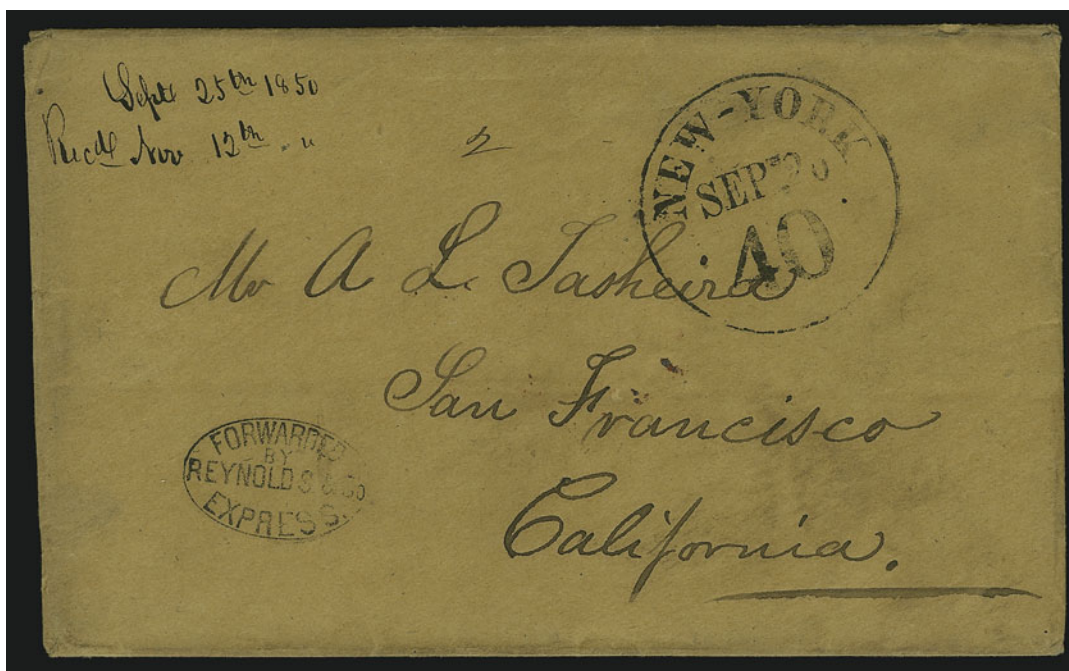 Sept 25th 1850
Recd Nov 12th "
2
NEW-YORK
SEP
40
Mr A L Tasheira
San Francisco
California.
FORWARDED
BY
REYNOLDS & Co
EXPRESS.